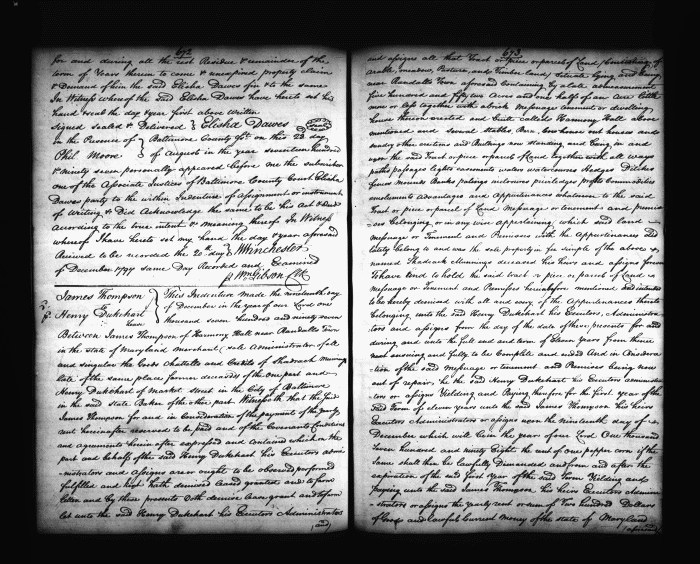 672
for and during all the rest Residue & remainder of the
term of Years therein to come & unexpired property claim
& Demand of him the said Elisha Dawes fin & to the same
In Witness whereof the said Elisha Dawes have hereto set his
hand & seal the day & year first above written
Signed sealed & Delivered } Elisha Dawes (seal)
in the Presence of } Baltimore County Sct. on this 22 day
Phil Moore } of August in the year seventeen hundred
& Ninety seven personally appeared before me the subscriber
one of the Associate Justices of Baltimore County Court Elisha
Dawes party to the within Indenture of Assignment or instrument
of Writing & Did Acknowledge the same to be his Act & Deed
According to the true intent & meaning thereof In Witness
whereof I have hereto set my hand the day & year aforesaid
Received to be recorded the 20 day } Winchester
of December 1797 same Day Recorded and Examined
Wm Gibson Clk
James Thompson } This Indenture Made the nineteenth day
of December in the year of our Lord one
Henry Dukehart } thousand seven hundred and ninety seven
Between James Thompson of Harmony Hall near Randalls Town
in the state of Maryland merchant sole Administrator of all
and singular the Goods Chattells and Credits of Shadrach
late of the same place farmer deceased of the one part and
Henry Dukehart of Market street in the City of Baltimore
in the said state Baker of the other part Witnesseth that the said
James Thompson for and in Consideration of the payment of the yearly
rent hereinafter reserved to be paid and of the Covenants Conditions
and agreements herein after expressed and contained which on the
part and behalf of the said Henry Dukehart his Executors admi
nistrators and Assigns are or ought to be observed performed
fulfilled and kept hath demised and granted and to farm
letten and by these presents Doth demise Grant and to farm
let unto the said Henry Dukehart his Executors Administrators
(and)
673
and assigns all that Tract or piece or parcel of Land, containing of
arable, meadow, Pasture and timber land, situate lying and being
near Randalls Town aforesaid Containing by a late admeasurement
five hundred and fifty two Acres and one half of an Acre with
more or less together with a brick Messuage tenement or dwelling
house thereon erected and Scite called Harmony Hall above
mentioned and several stables, Barn, Cow house out houses and
sundry other erections and Buildings now standing and being in and
upon the said Tract or piece or parcel of Land together with all ways
paths passages lights easements waters watercourses Hedges Ditches
fences mounds Banks palings motives priviledges profits Commodities
emoluments Advantages and Appurtenances whatsoever to the said
Tract or piece or parcel of Land Messuage or tenement and Premis
es belonging, or in any wise appertaining, which said Land
messuage or Tenement and Premises with the Appurtenances did
lately belong to and was the sole property in fee simple of the above
named Shadrach deceased his Heirs and assigns forever
To have & to hold the said tract or piece or parcel of Land
messuage or Tenement and Premises hereinbefore mentioned and intended
to be hereby demised with all and every of the Appurtenances thereto
belonging, unto the said Henry Dukehart his Executors, Administra
tors and assigns from the day of the date of these presents for and
during and unto the full end and term of Eleven Years from thence
next ensuing and fully to be Complete and ended And in Considera
tion of the said Messuage or tenement and Premises being now
out of repair, he the said Henry Dukehart his Executors administra
tors or assigns Yielding and Paying therefor for the first year of the
said Term of eleven years unto the said James Thompson his heirs
Executors Administrators or assigns upon the Nineteenth day of
December which will be in the year of our Lord One thousand
Seven hundred and ninety Eight the rent of one pepper corn if the
Same shall then be lawfully Demanded and from and after the
expiration of the said first Year of the said Term Yielding and
paying unto the said James Thompson his heirs Executors Adminis
trators or assigns the yearly rent or sum of Two hundred Dollars
of good and lawful Current money of the State of Maryland